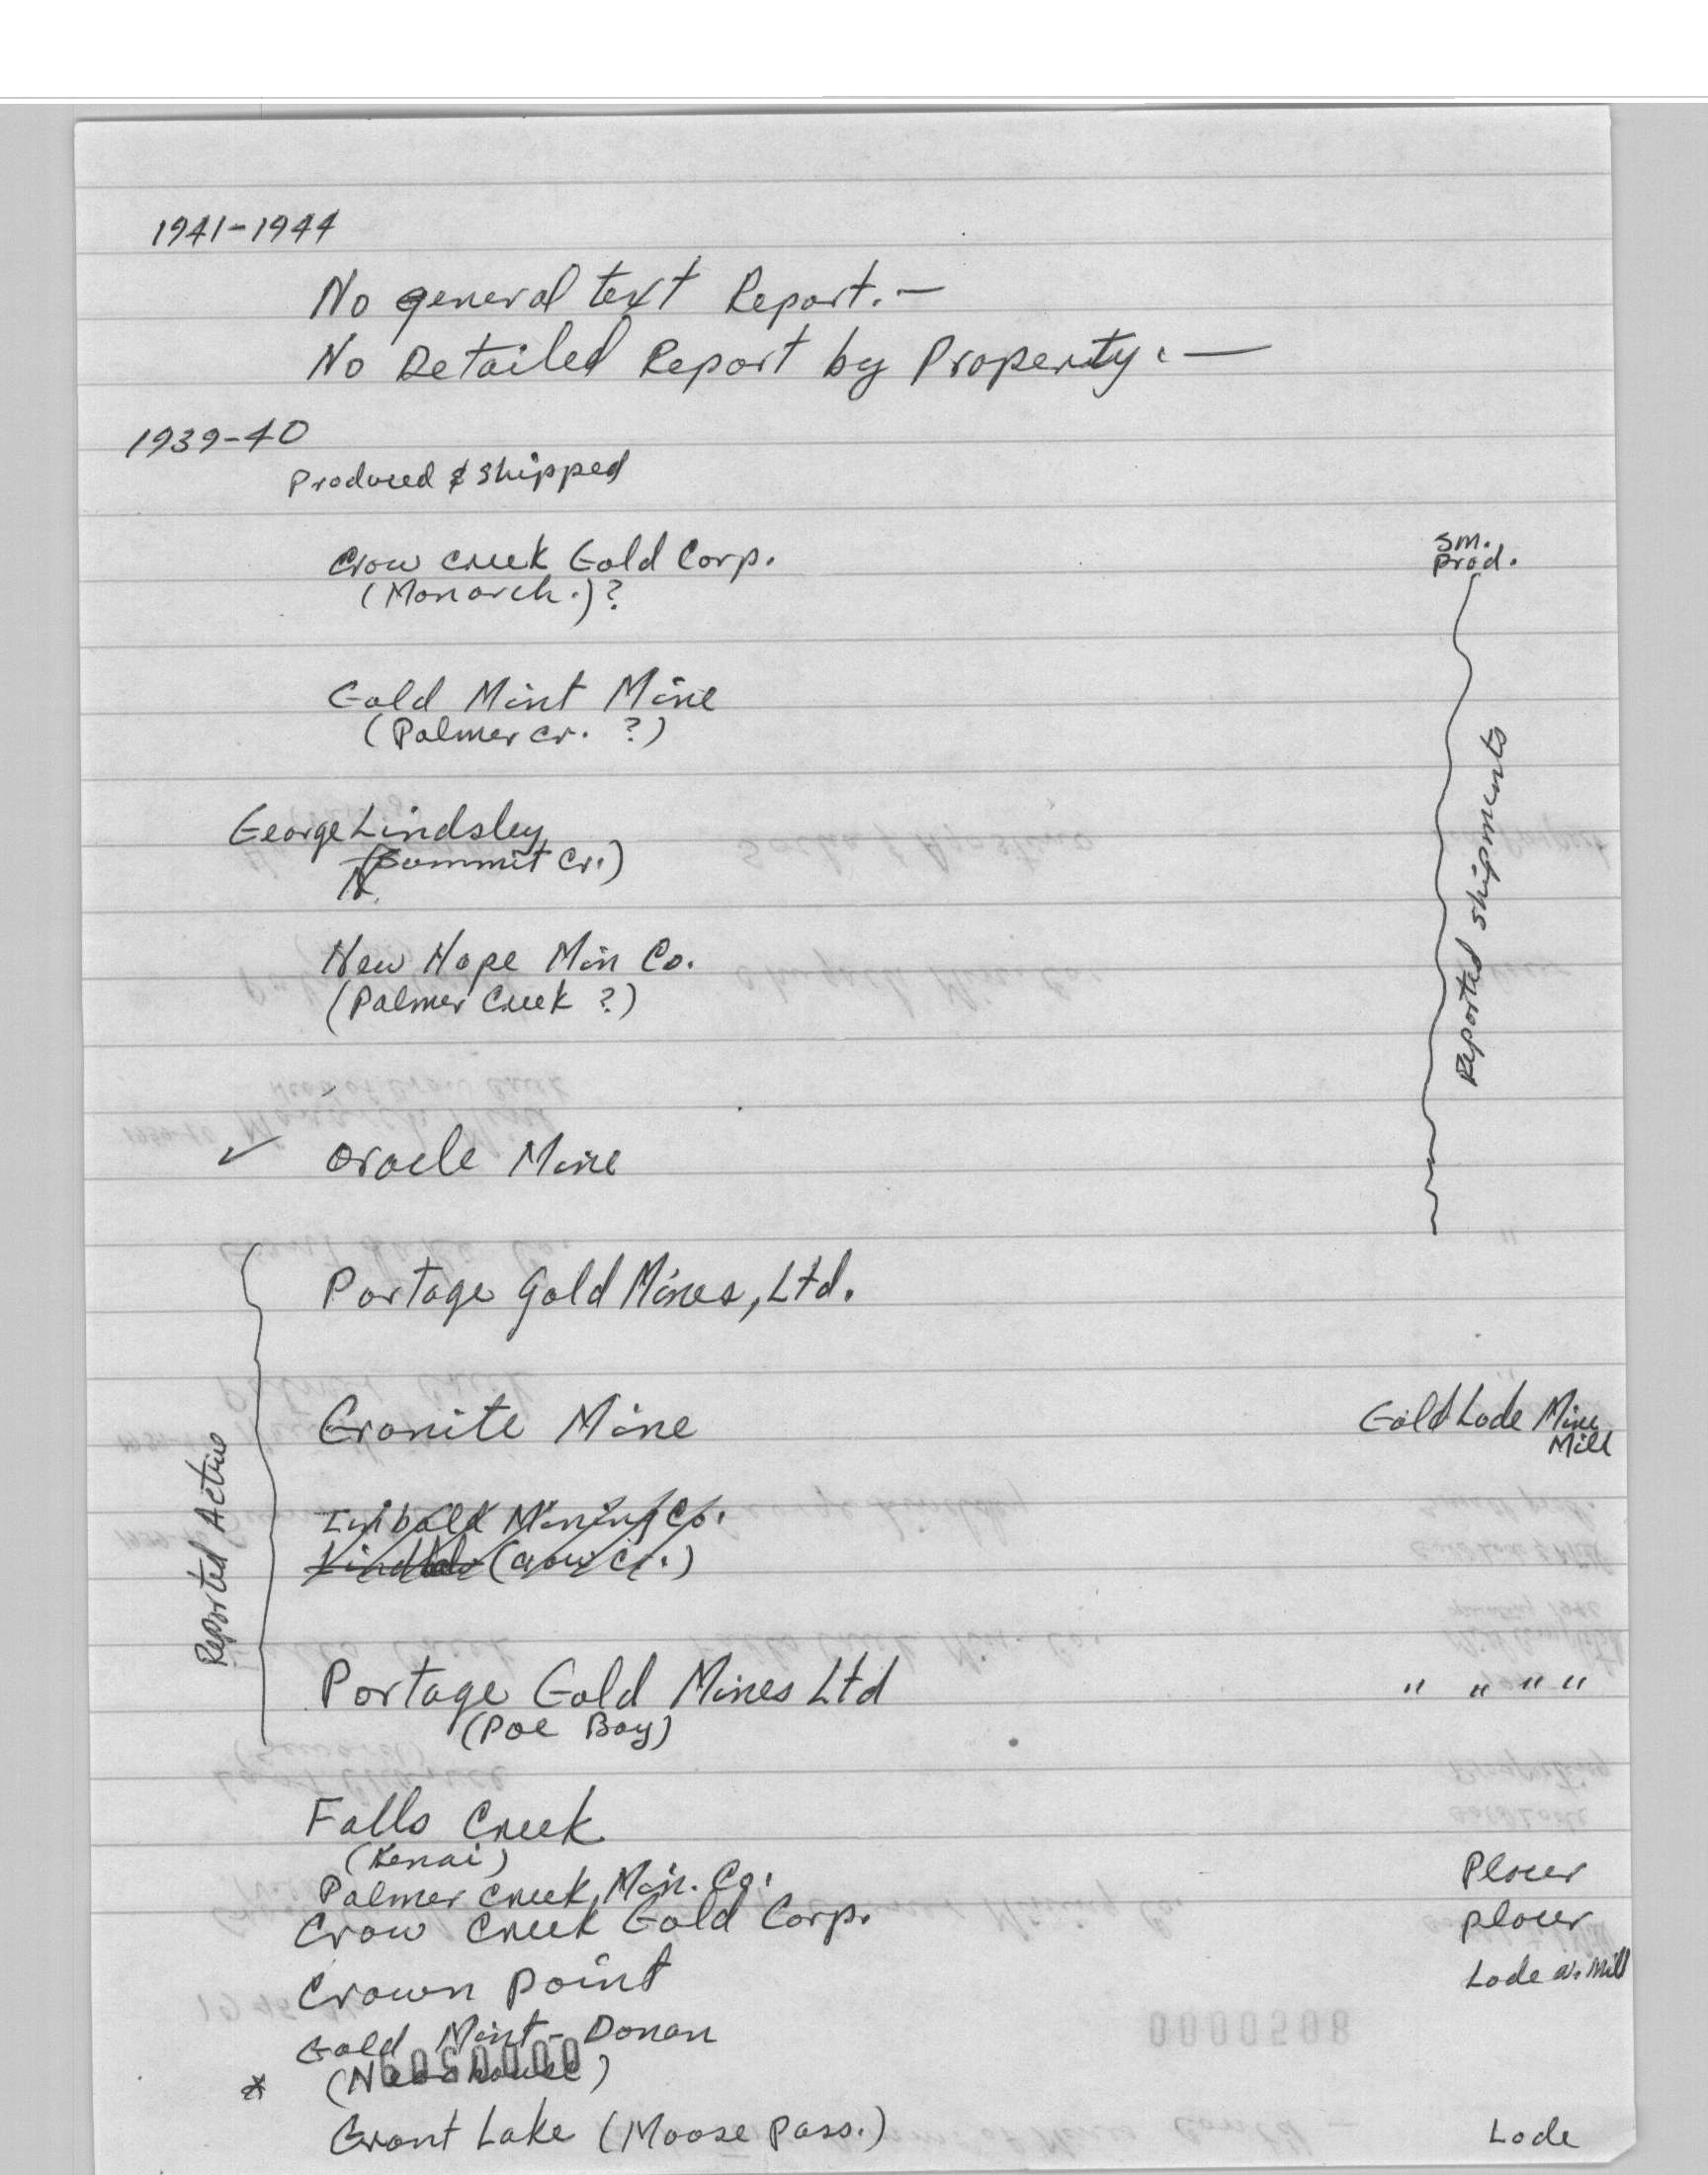 1941-1944
No general text Report.—
No Detailed Report by Property.—
1939-40
Produced & Shipped
Crow Creek Gold Corp.
(Monarch.)?
sm.
prod.
Gold Mint Mine
(Palmer Cr. ?)
George Lindsley
(Summit Cr.)
New Hope Min Co.
(Palmer Creek ?)
Reported shipments
✓ Oracle Mine
Portage Gold Mines, Ltd.
Granite Mine
Gold Lode Mine
Mill
Reported Active
Mining Co.
(Crow Cr.)
Portage Gold Mines Ltd " " " "
(Poe Bay)
Falls Creek
(Kenai)
Palmer Creek Min. Co. Placer
Crow Creek Gold Corp. placer
Crown Point Lode w. Mill
Gold Mint - Donan
* (
0000509
0000508
Grant Lake (Moose Pass.) Lode